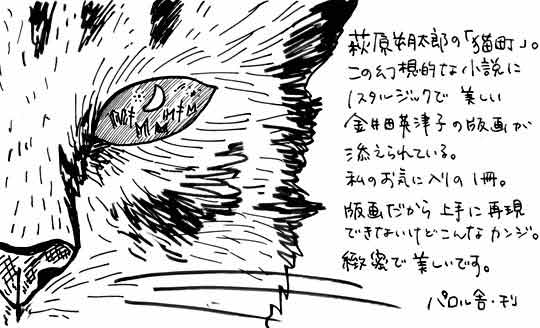 萩原朔太郎の「猫町」。
この幻想的な小説に
ノスタルジックで 美しい
金井田英津子の版画が
添えられている。
私のお気に入りの1冊。
版画だから 上手に再現
できないけどこんなカンジ。
緻蜜で美しいです。
パロル舎・刊